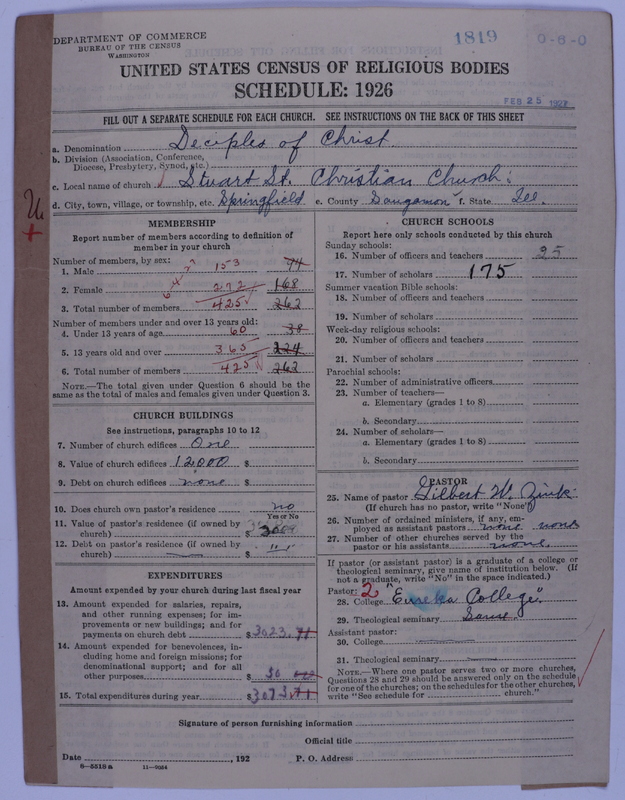 DEPARTMENT OF COMMERCE
BUREAU OF THE CENSUS
WASHINGTON
1819
0-8-0
UNITED STATES CENSUS OF RELIGIOUS BODIES
SCHEDULE: 1926
FEB 25 1927
FILL OUT A SEPARATE SCHEDULE FOR EACH CHURCH. SEE INSTRUCTIONS ON THE BACK OF THIS SHEET
a. Denomination Deciples of Christ
b. Division (Association, Conference, Diocese, Presbytery, Synod, etc.)
c. Local name of church Stuart St. Christian Church.
d. City, town, village, or township, etc. Springfield e. County Sangamon f. State Ill.
MEMBERSHIP
Report number of members according to definition of
member in your church
Number of members, by sex:
1. Male 153
2. Female 272 168
3. Total number of members 425 262
Number of members under and over 13 years old:
4. Under 13 years of age 60 38
5. 13 years old and over 365 224
6. Total number of members 425 262
NOTE.—The total given under Question 6 should be the
same as the total of males and females given under Question 3.
CHURCH BUILDINGS
See instructions, paragraphs 10 to 12
7. Number of church edifices One
8. Value of church edifices 12000 $
9. Debt on church edifices none $
10. Does church own pastor's residence no
Yes or No
11. Value of pastor's residence (if owned by
church) $
12. Debt on pastor's residence (if owned by
church) $
EXPENDITURES
Amount expended by your church during last fiscal year
13. Amount expended for salaries, repairs,
and other running expenses; for im-
provements or new buildings; and for
payments on church debt $ 3023.71
14. Amount expended for benevolences, in-
cluding home and foreign missions; for
denominational support; and for all
other purposes $ 50
15. Total expenditures during year $ 3073.71
CHURCH SCHOOLS
Report here only schools conducted by this church
Sunday schools:
16. Number of officers and teachers 25
17. Number of scholars 175
Summer vacation Bible schools:
18. Number of officers and teachers
19. Number of scholars
Week-day religious schools:
20. Number of officers and teachers
21. Number of scholars
Parochial schools:
22. Number of administrative officers
23. Number of teachers—
a. Elementary (grades 1 to 8)
b. Secondary
24. Number of scholars—
a. Elementary (grades 1 to 8)
b. Secondary
PASTOR
25. Name of pastor Gilbert W. Zink
(If church has no pastor, write "None")
26. Number of ordained ministers, if any, em-
ployed as assistant pastors none none
27. Number of other churches served by the
pastor or his assistants none
If pastor (or assistant pastor) is a graduate of a college or
theological seminary, give name of institution below. (If
not a graduate, write "No" in the space indicated.)
Pastor: 2
28. College "Eureka College"
29. Theological seminary Same
Assistant pastor:
30. College
31. Theological seminary
NOTE.—Where one pastor serves two or more churches,
Questions 28 and 29 should be answered only on the schedule
for one of the churches; on the schedules for the other churches,
write "See schedule for church."
Signature of person furnishing information
Official title
Date , 192 P. O. Address
8-5518 a 11-9034